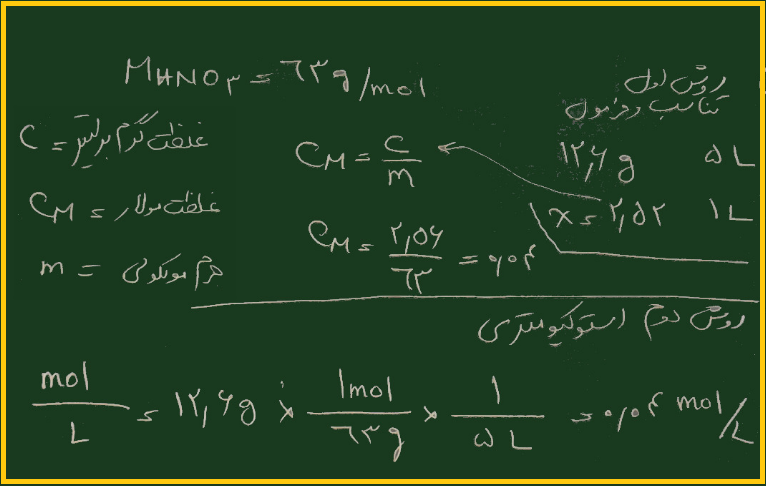 MHNO۳ = ۶۳g/mol
روش اول
تناسب و فرمول
C = غلظت گرم بر لیتر
CM = C/m
۱۲,۶ g ۵ L
CM = غلظت مولار
x = ۲,۵۲ ۱ L
CM = ۲,۵۶/۶۳ = ۰,۰۴
m = جرم مولکولی
روش دوم استوکیومتری
mol/L = ۱۲,۶g × 1mol/۶۳g × 1/۵ L = ۰,۰۴ mol/L